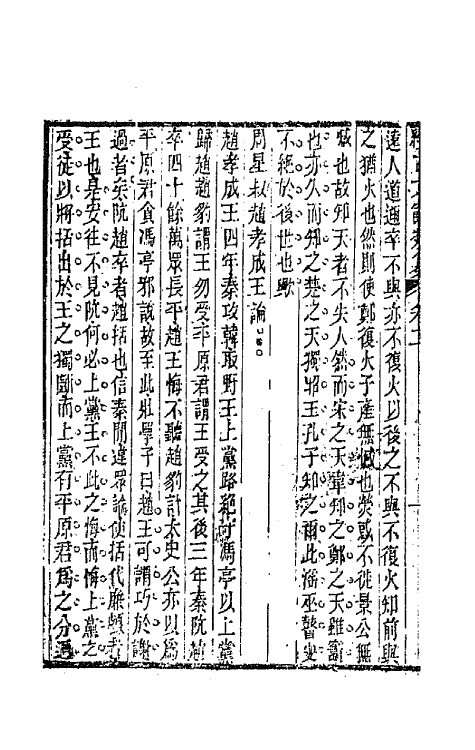 遠人道邇卒不與亦不復火以後之不與不復火知前與
之猶火也然則使鄭復火子產無憾也熒惑不徙景公無
憾也故知天者不失人然而宋之天韋知之鄭之天雖竈
也亦久而知之楚之天獨昭王孔子知之爾此徭巫瞽史
不絕於後世也歟
周星叔趙孝成王論
趙孝成王四年秦攻韓取野王上黨路絕守馮亭以上黨
歸趙趙豹謂王勿受平原君謂王受之其後三年秦阬趙
卒四十餘萬眾長平趙王悔不聽趙豹計太史公亦以為
平原君貪馮亭邪說故至此壯學子曰趙王可謂巧於謝
過者矣阬趙卒者趙括也信秦間違眾論使括代廉頗者
王也是安往不見阬何必上黨王不此之悔而悔上黨之
受徒以將括出於王之獨斷而上黨有平原君為之分過